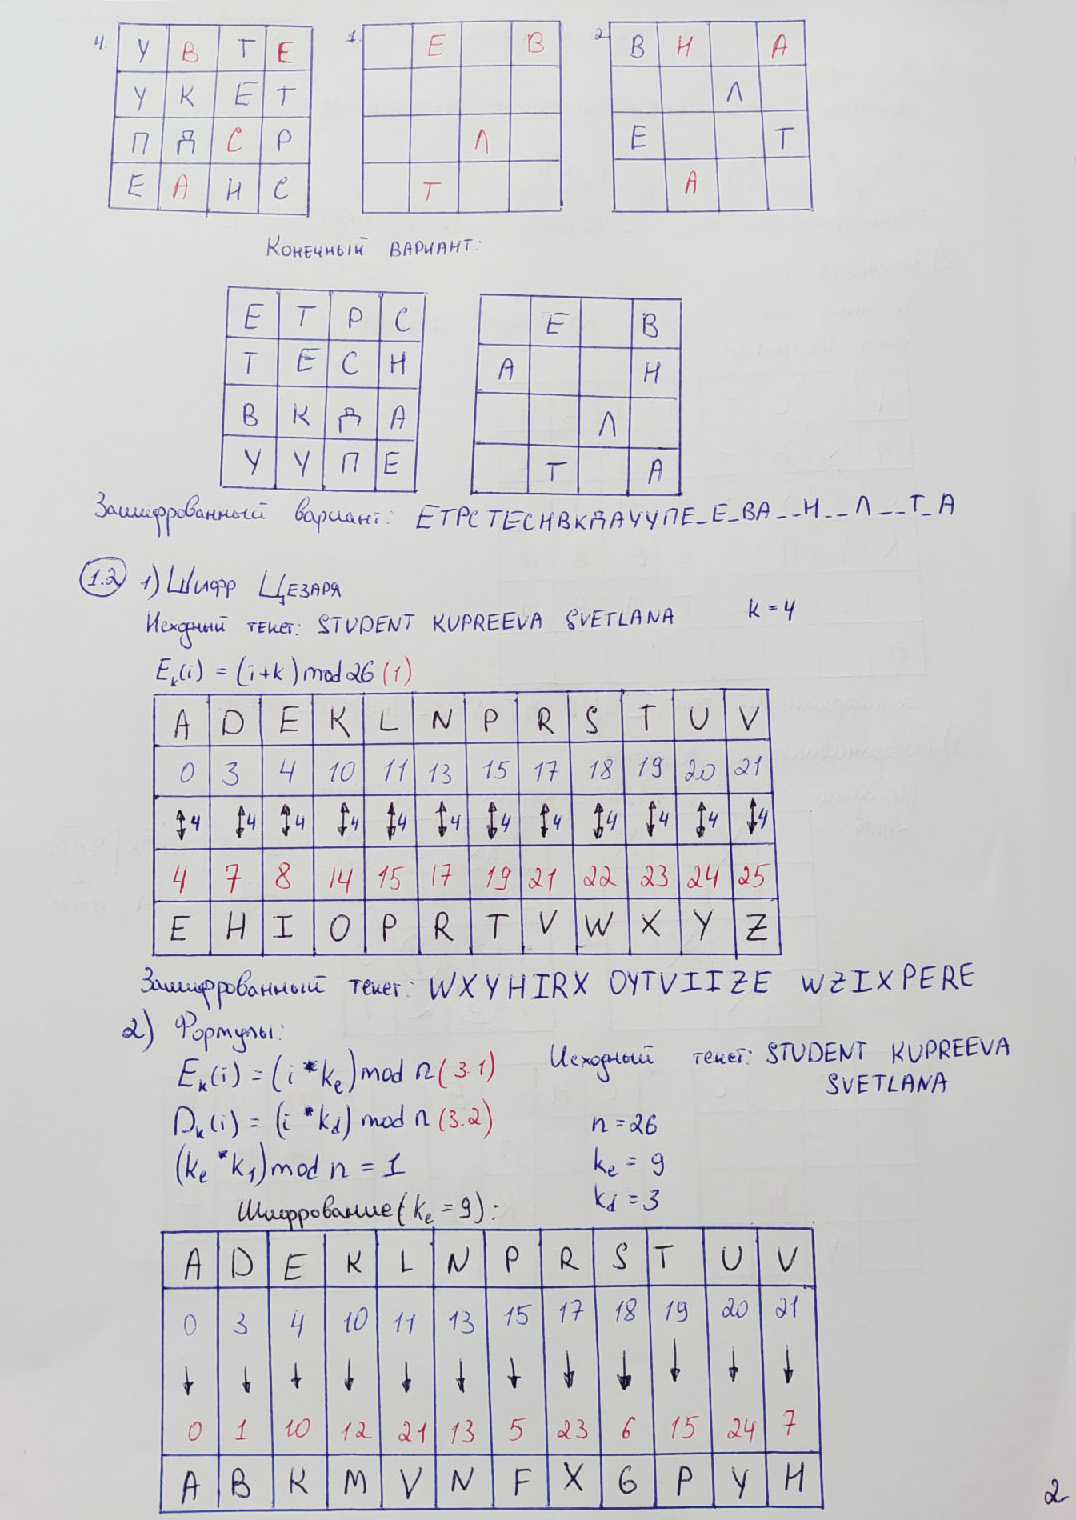 4.
У В Т Е
У К Е Т
П Д С Р
Е А Н С
1.
Е В
Л
Т
2.
В Н А
Л
Е Т
А
Конечный вариант:
Е Т Р С
Т Е С Н
В К Д А
У У П Е
Е В
А Н
Л
Т А
Зашифрованный вариант: ЕТРСТЕСНВКДАУУПЕ_Е_ВА__Н__Л__Т_А
1.2 1) Шифр Цезаря
Исходный текст: STUDENT KUPREEVA SVETLANA k=4
Eₖ(i) = (i+k) mod 26 (1)
A D E K L N P R S T U V
0 3 4 10 11 13 15 17 18 19 20 21
↕4 ↕4 ↕4 ↕4 ↕4 ↕4 ↕4 ↕4 ↕4 ↕4 ↕4 ↕4
4 7 8 14 15 17 19 21 22 23 24 25
E H I O P R T V W X Y Z
Зашифрованный текст: WXYHIRX OYTVIIZE WZIXPERE
2) Формулы:
Eₖ(i) = (i * kₑ) mod n (3.1)
Исходный текст: STUDENT KUPREEVA
SVETLANA
Dₖ(i) = (i * k_d) mod n (3.2)
n = 26
(kₑ * k₁) mod n = 1
kₑ = 9
k_d = 3
Шифрование (kₑ = 9):
A D E K L N P R S T U V
0 3 4 10 11 13 15 17 18 19 20 21
↓ ↓ ↓ ↓ ↓ ↓ ↓ ↓ ↓ ↓ ↓ ↓
0 1 10 12 21 13 5 23 6 15 24 7
A B K M V N F X G P Y H
2